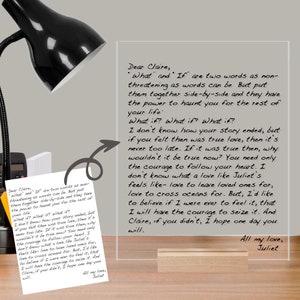 Dear Claire,
"What" and "If" are two words as non-
threatening as words can be. But put
them together side-by-side and they have
the power to haunt you for the rest of
your life'
What if? What if? What if?
I don't know how your story ended, but
if you felt then was true love, then it's
never too late. If it was true then, why
wouldn't it be true now? You need only
the courage to follow your heart. I
don't know what a love like Juliet's
feels like- love to leave loved ones for,
love to cross oceans for. But, I'd like
to believe if I were ever to feel it, that
I will have the courage to seize it. And
Claire, if you didn't, I hope one day you
will.
All my love,
Juliet
Dear Claire,
"What" and "If" are two words as non-
threatening as words can be. But put
them together side-by-side and they have
the power to haunt you for the rest of
your life'
What if? What if? What if?
I don't know how your story ended, but
if you felt then was true love, then it's
never too late. If it was true then, why
wouldn't it be true now? You need only
the courage to follow your heart. I
don't know what a love like Juliet's
feels like- love to leave loved ones for,
love to cross oceans for. But, I'd like
to believe if I were ever to feel it, that
I will have the courage to seize it. And
Claire, if you didn't, I hope one day you
will.
All my love,
Juliet